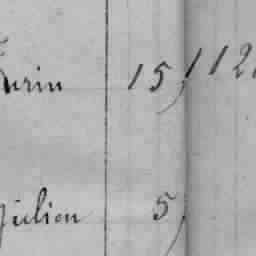 Turin 15, 112
Julien 5,